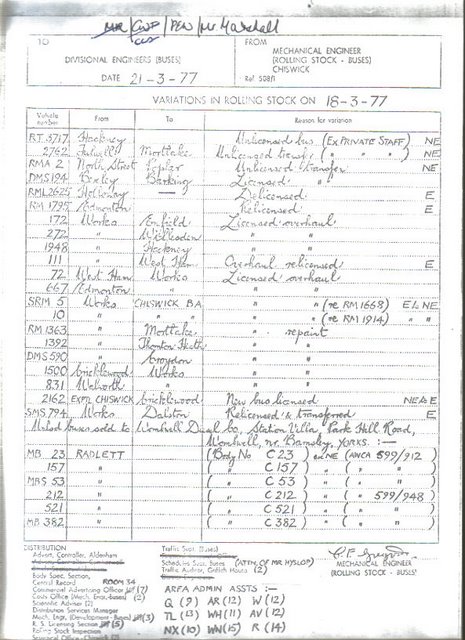 MR/CWF/PEN/Mr Marshall
TO
DIVISIONAL ENGINEERS (BUSES)
DATE 21-3-77
FROM
MECHANICAL ENGINEER
(ROLLING STOCK - BUSES)
CHISWICK
Ref.
VARIATIONS IN ROLLING STOCK ON 18-3-77
Vehicle number From To Reason for variation
RT 3717 Hackney Unlicensed bus (EX PRIVATE STAFF) NE
2762 Fulwell Mortlake Unlicensed transfer ( " " ) NE
RMA 2 North Street Poplar Unlicensed transfer NE
DMS 194 Bexley Barking Licensed "
RML 2625 Holloway — Delicensed E
RM 1795 Edmonton Relicensed E
172 Works Enfield Licensed overhaul
272 " Willesden " "
1948 " Hackney " "
111 " West Ham Overhaul relicensed E
72 West Ham Works Licensed overhaul
667 Edmonton " " "
SRM 5 Works CHISWICK B.A. " " (re RM 1668) E & NE
10 " " " " (re RM 1914) " "
RM 1363 " Mortlake " repaint
1392 " Thornton Heath " "
DMS 590 " Croydon " "
1500 Cricklewood Works " "
831 Walworth " " "
2162 EXPL CHISWICK Cricklewood New bus licensed NE & E
SMS 794 Works Dalston Relicensed & transferred E
Unlicd buses sold to Wombwell Diesel Co, Station Villa, Park Hill Road,
Wombwell, nr. Barnsley, YORKS. :—
MB 23 RADLETT (Body No C 23 ) NE (AWCA 599/912 )
157 " ( " C 157 ) " ( " " )
MBS 53 " ( " C 53 ) " ( " " )
212 " ( " C 212 ) " ( " 599/948 )
521 " ( " C 521 ) " ( " " )
MB 382 " ( " C 382 ) " ( " " )
DISTRIBUTION
Advert. Controller, Aldenham
Body Spec. Section,
Central Record ROOM 34
Commercial Advertising Officer (7)
Code Office (Mech. Eng. Buses) (2)
Scientific Adviser (2)
Distribution Services Manager
Mech. Engr. (Development - Buses) (3)
R. S. Licensing Section (5)
Rolling Stock Inspection
Traffic Supt. (Buses)
Schedules Supt. Buses (ATTN. OF MR HYSLOP)
Traffic Auditor, Griffith House (2)
AREA ADMIN ASSTS :—
Q (9) AR (12) W (12)
TL (13) WH (11) AV (12)
NX (10) WN (15) R (14)
MECHANICAL ENGINEER
(ROLLING STOCK - BUSES)